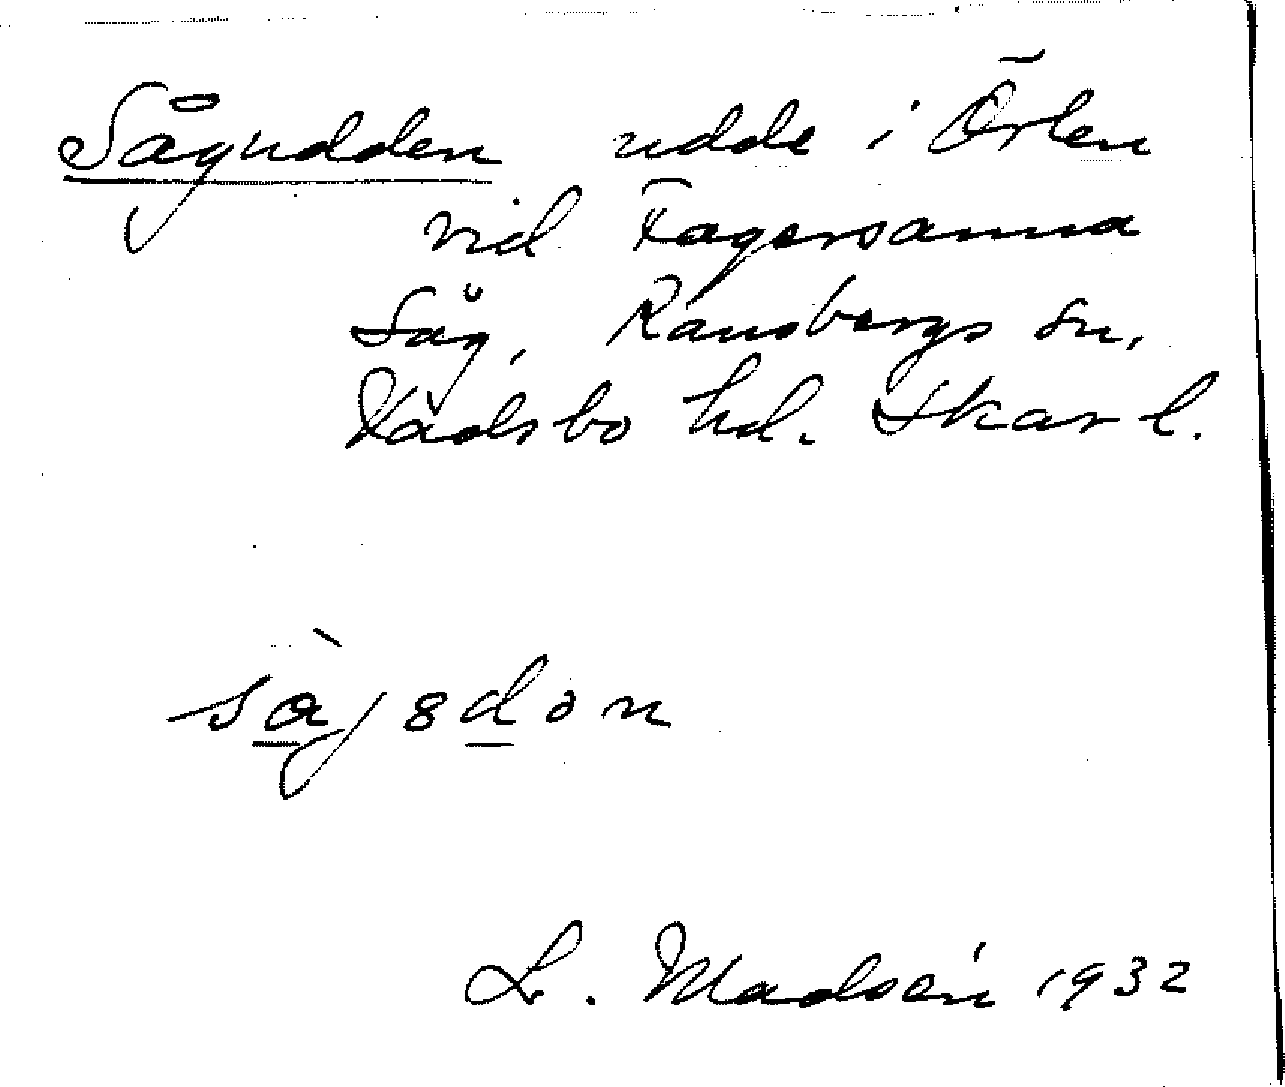 Sågudden udde i Örlen
vid Fagersanna
Såg, Ransbergs sn,
Vadsbo hd. Skar l.
L. Madsén 1932